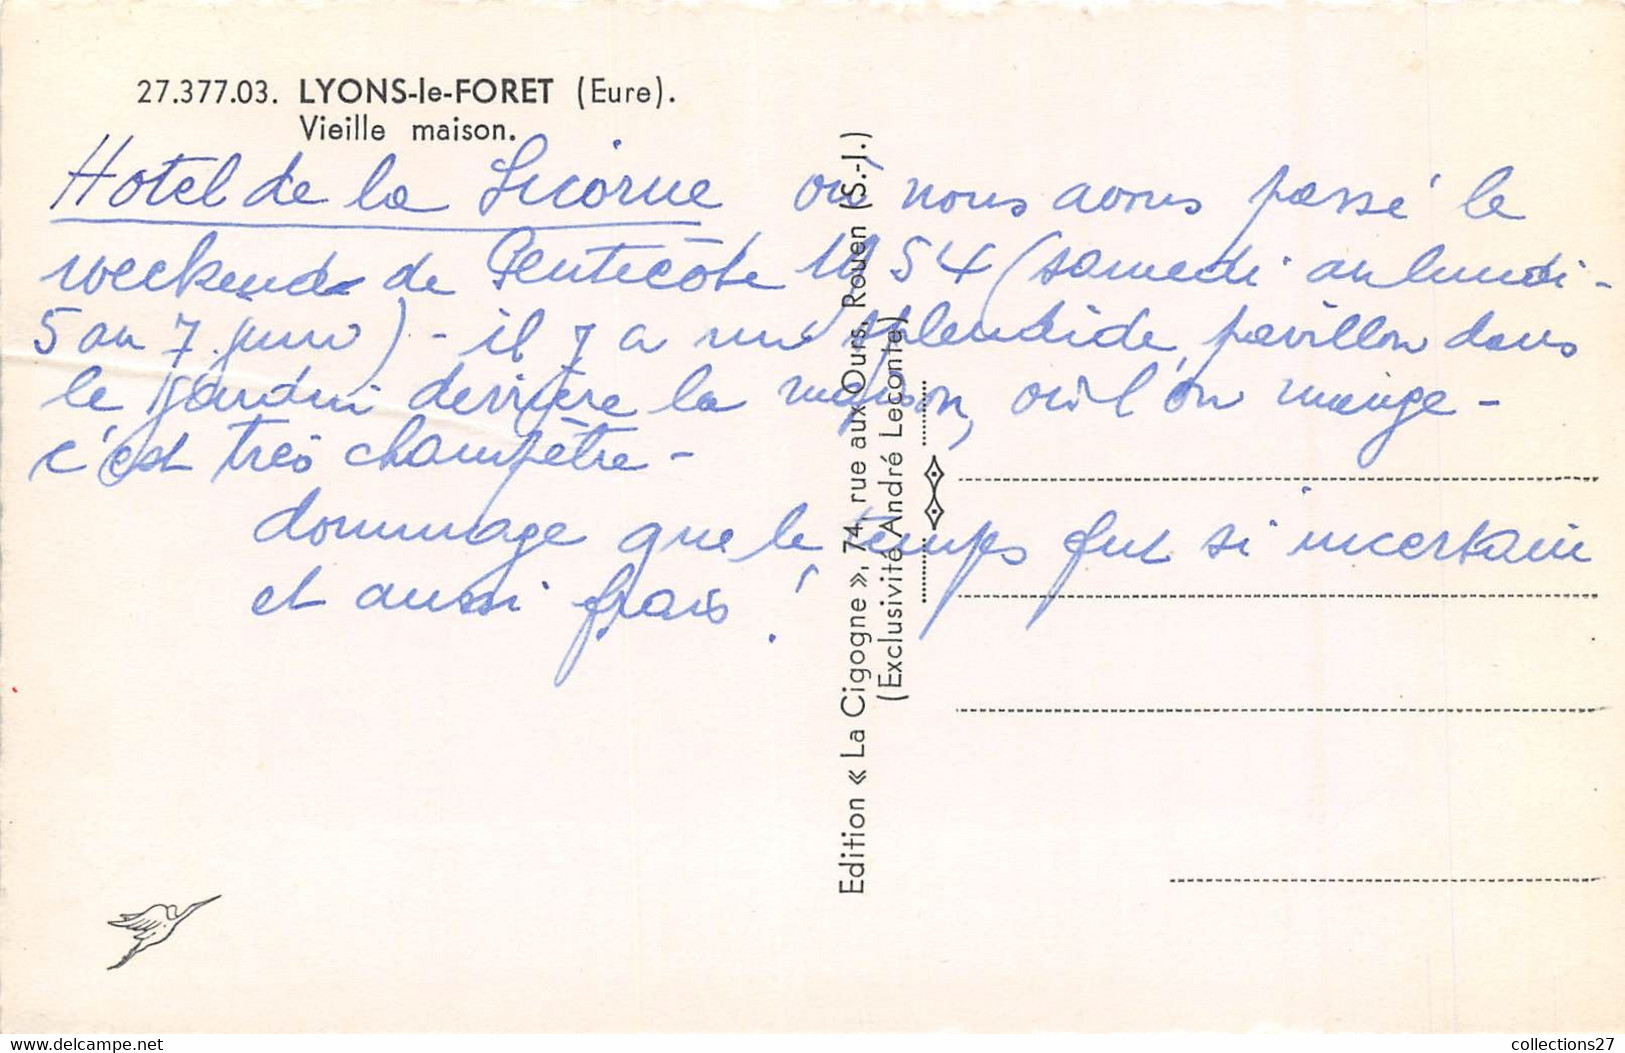 27.377.03. LYONS-le-FORET (Eure).
Vieille maison.
Hotel de la Licorne où nous avons passé le
weekend de Pentecôte 1954 (samedi au lundi -
5 au 7 juin) - il y a un splendide pavillon dans
le jardin derrière la maison, où l'on mange -
c'est très champêtre -
dommage que le temps fut si incertain
et aussi frais !
Edition « La Cigogne », 74, rue aux Ours, Rouen (S.-I.)
(Exclusivité André Leconte)
delcampe.net
collections27